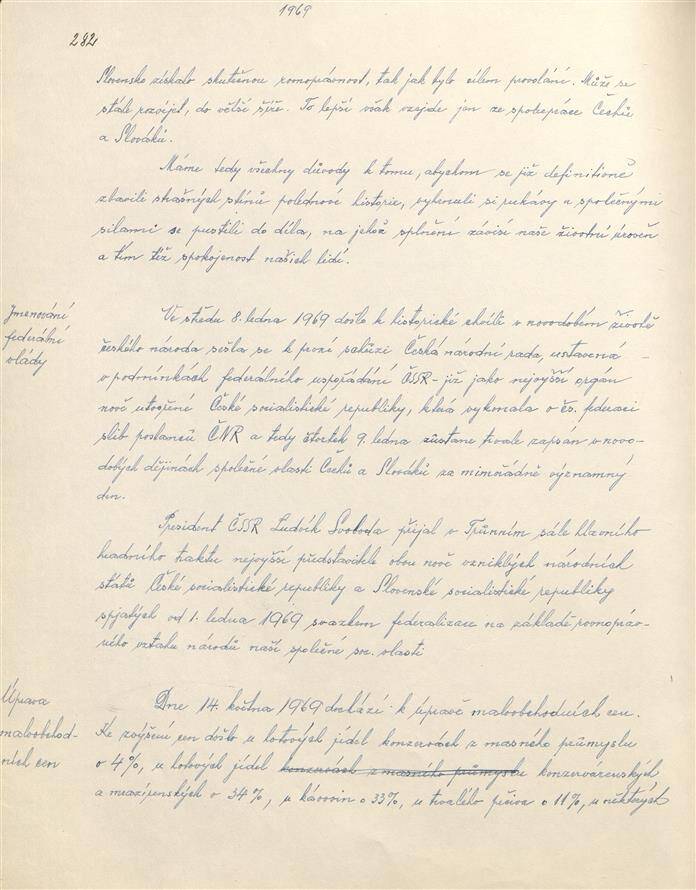 1969
282
Slovensko získalo skutečnou rovnoprávnost, tak jak bylo cílem povolání. Může se
stále rozvíjet, do větší šíře. To lepší však vzejde jen ze spolupráce Čechů
a Slováků.
Máme tedy všechny důvody k tomu, abychom se již definitivně
zbavili strašných stínů polednové historie, vyhrnuli si rukávy a společnými
silami se pustili do díla, na jehož splnění závisí naše životní úroveň
a tím též spokojenost našich lidí.
Jmenování
federální
vlády
Ve středu 8. ledna 1969 došlo k historické chvíli v novodobém životě
českého národa sešla se k první schůzi Česká národní rada, ustavená -
v podmínkách federálního uspořádání ČSSR - již jako nejvyšší orgán
nově utvořené České socialistické republiky, která vykonala o čs. federaci
slib poslanců ČNR a tedy čtvrtek 9. ledna zůstane trvale zapsán v novo-
dobých dějinách společné vlasti Čechů a Slováků za mimořádně významný
den.
President ČSSR Ludvík Svoboda přijal v Trůnním sále hlavního
hradního traktu nejvyšší představitele obou nově vzniklých národních
států České socialistické republiky a Slovenské socialistické republiky
spjatých od 1. ledna 1969 svazkem federalizace na základě rovnopráv-
ného vztahu národů naší společné soc. vlasti
Úprava
maloobchod-
ních cen
Dne 14. května 1969 dochází k úpravě maloobchodních cen.
Ke zvýšení cen došlo u hotových jídel konzervách z masného průmyslu
o 4%, u hotových jídel konzervách z masného průmyslu konzervárenských
a mrazírenských o 34%, u kávovin o 33%, u trvalého pečiva o 11%, u některých